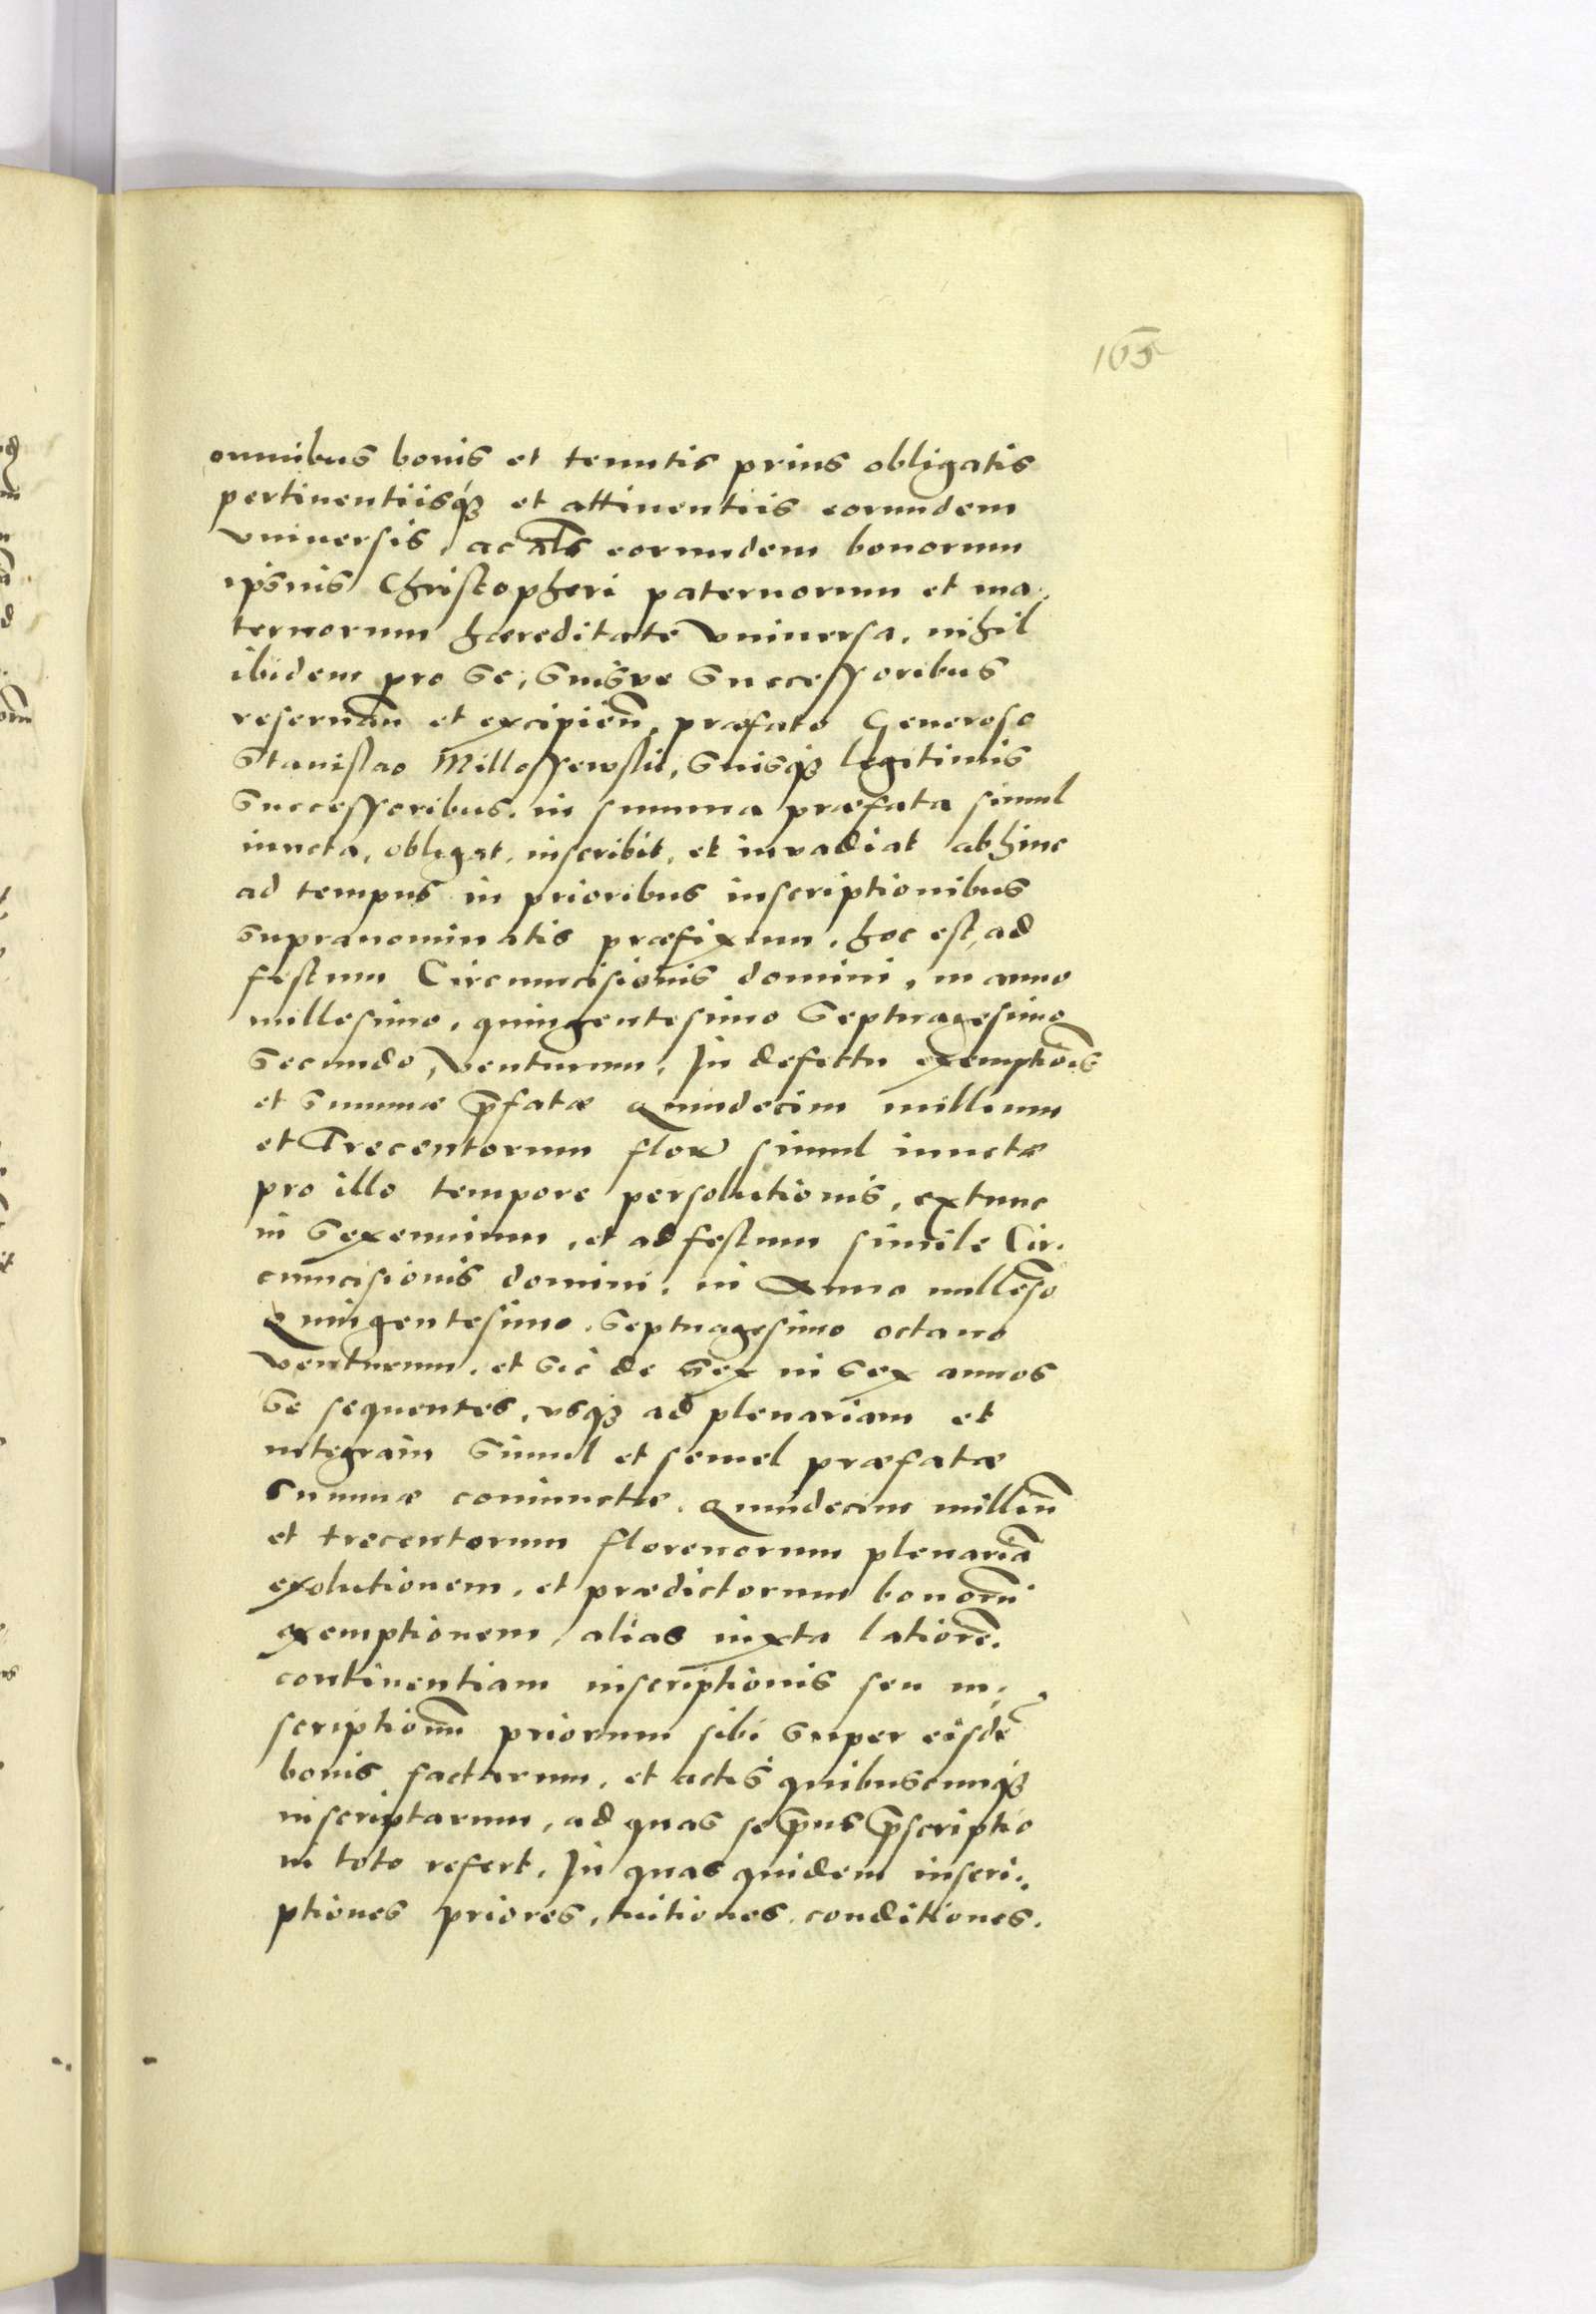 165
omnibus bonis et tenutis prius obligatis
pertinentiisq́ꝫ et attinentiis eorundem
vniuersis, ac als̄ eorundem bonorum
ip̄suis Christopheri paternorum et ma,
ternorum hæreditate vniuersa, nihil
ibidem pro se, suisve successoribus
reseruan̄ et excipien̄, præfato Generoso
Stanislao Millossewskii, suisqꝫ legitimis
successoribus, in summa præfata simul
iuncta, obligat, inscribit, et invadiat abhinc
ad tempus in prioribus inscriptionibus
supranominatis præfixum, hoc est, ad
festum Circumcisionis domini, in anno
millesimo, quingentesimo septuagesimo
secundo, venturum, In defectu exemptiōis
et summæ p̄fatæ Quindecim millium
et Trecentorum flor simul iunctæ
pro illo tempore persolutionis, extunc
in sexennium, et ad festum simile Cir,
cumcisionis domini, in Anno millēso
Quingentesimo, septuagesimo octauo
venturum, et sic de sex in sex annos
se sequentes, vsqꝫ ad plenariam et
integram simul et semel præfatæ
summæ coniunctæ, Quindecim milliū
et trecentorum florenorum plenariā
exolutionem, et prædictorum bonorū
exemptionem, alias iuxta latiorē,
continentiam inscriptionis seu in,
scriptionū priorum sibi super eisdē
bonis factarum, et actis quibuscumqꝫ
inscriptarum, ad quas se p̄ns p̄scriptio
in toto refert, In quas quidem inscri,
ptiones priores, tuitiones, conditiones.